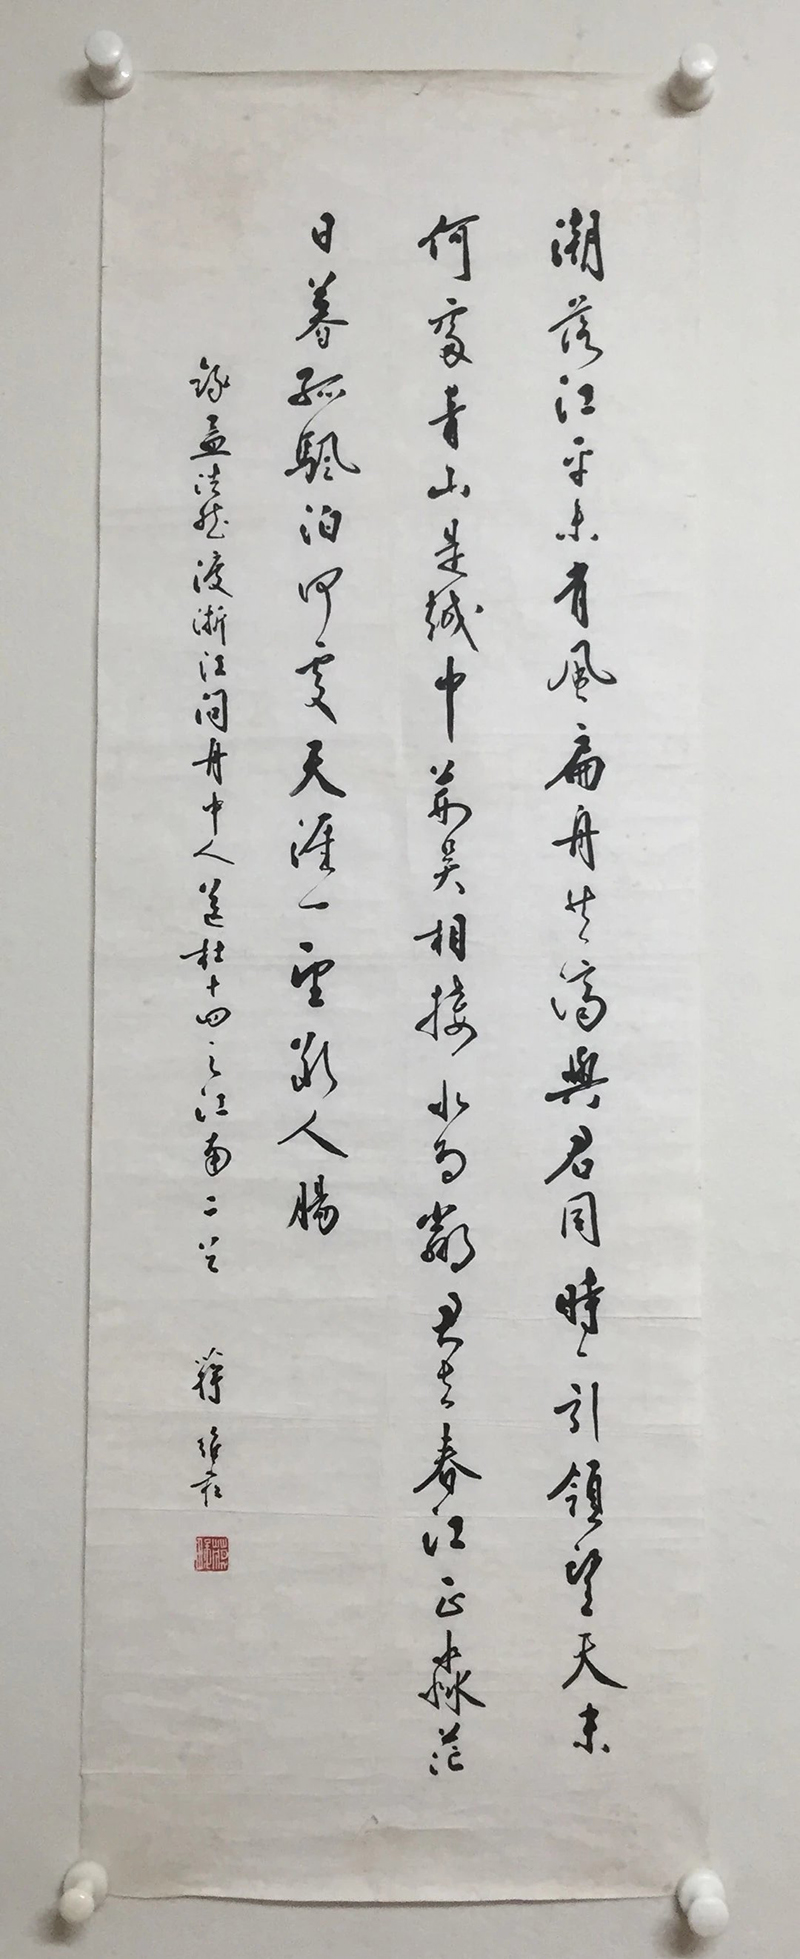 潮落江平未有風扁舟共濟與君同時々引領望天末
何處青山是越中荊吳相接水為鄉君去春江正淼茫
日暮孤颿泊何處天涯一望斷人腸
錄孟浩然渡浙江問舟中人送杜十四之江南二首 蔣